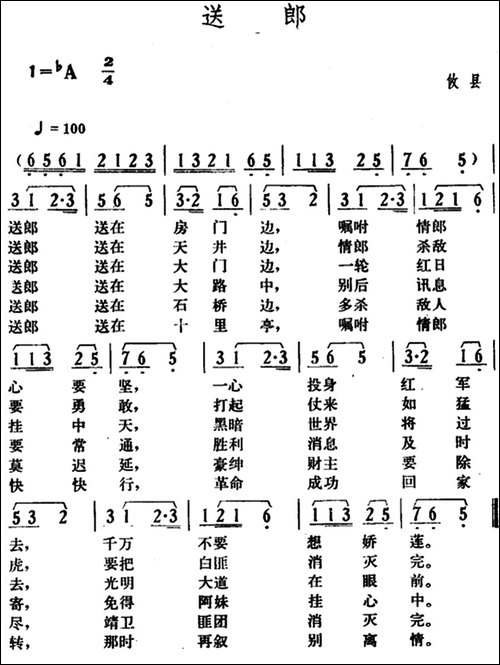 送 郎
1=♭A 2/4
攸县
♩=100
(6561 2123 | 1321 65 | 113 25 | 76 5) |
31 2·3 | 56 5 | 3·2 16 | 53 2 | 31 2·3 | 121 6 |
送郎 送在 房门边, 嘱咐 情郎
送郎 送在 天井边, 情郎 杀敌
送郎 送在 大门边, 一轮 红日
送郎 送在 大路中, 别后 讯息
送郎 送在 石桥边, 多杀 敌人
送郎 送在 十里亭, 嘱咐 情郎
113 25 | 76 5 | 31 2·3 | 56 5 | 3·2 16 |
心要坚, 一心 投身 红军
要勇敢, 打起 仗来 如猛
挂中天, 黑暗 世界 将过
要常通, 胜利 消息 及时
莫迟延, 豪绅 财主 要除
快快行, 革命 成功 回家
53 2 | 31 2·3 | 121 6 | 113 25 | 76 5 ‖
去, 千万 不要 想娇莲。
虎, 要把 白匪 消灭完。
去, 光明 大道 在眼前。
寄, 免得 阿妹 挂心中。
尽, 靖卫 匪团 消灭完。
转, 那时 再叙 别离情。